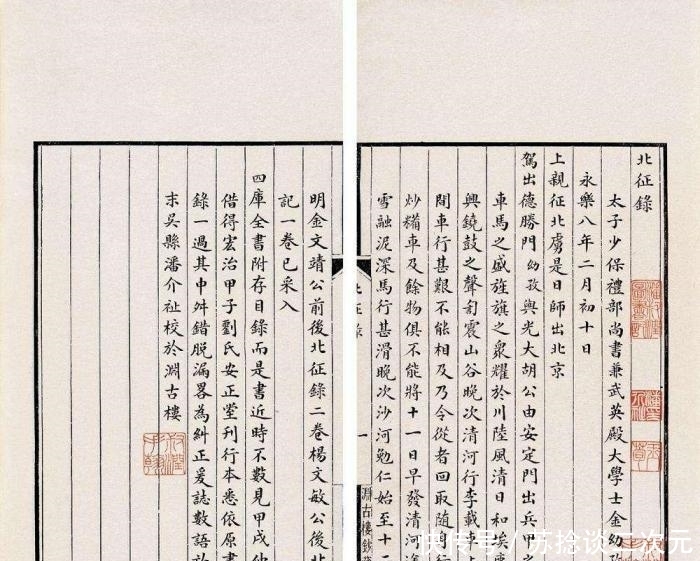 北征錄
太子少保禮部尚書兼武英殿大學士金幼孜
永樂八年二月初十日
上親征北虜是日師出北京
駕出德勝門幼孜與光大胡公由安定門出兵甲之
車馬之盛旌旗之衆耀於川陸風清日和埃
興鐃鼓之聲訇震山谷晚次清河行李載車
間車行甚艱不能相及乃令從者回取隨
炒糒車及餘物俱不能將十一日早發清河
雪融泥深馬行甚滑晚次沙河勉仁始至十二
北征錄
一
淵古樓鈔
明金文靖公前後北征錄二卷楊文敏公後北
記一卷已采入
四庫全書附存目錄而是書近時不數見甲戌仲
借得宏治甲子劉氏安正堂刊行本悉依原書
錄一過其中舛錯脫漏畧為糾正爰誌數語於
末吳縣潘介祉校於淵古樓
快传号 / 苏捻谈二次元